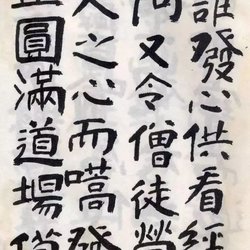 誰發心供看經
同又令僧徒勞
人之心而嗃發
圓滿道場